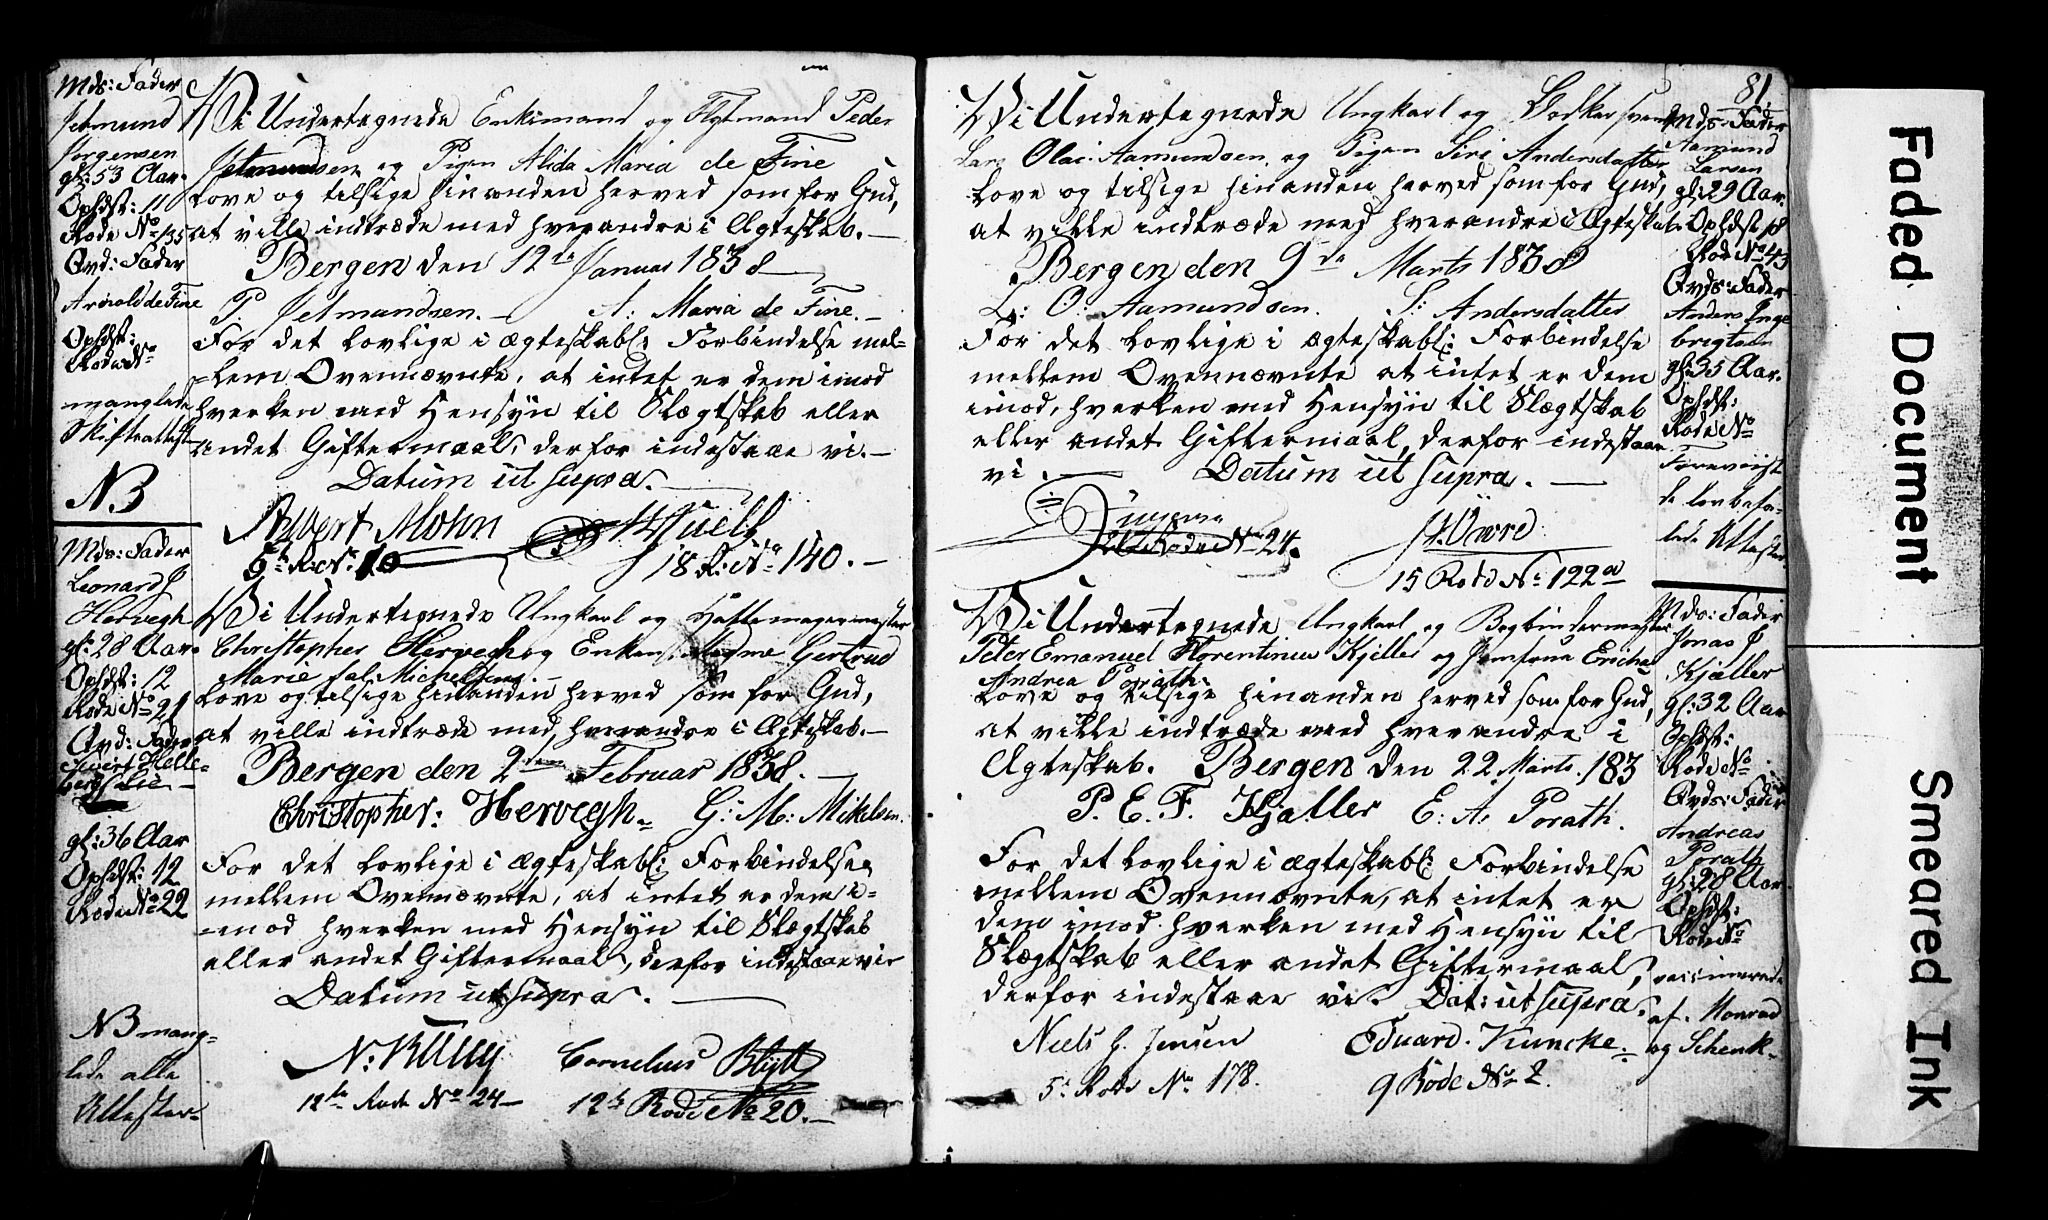 Mds: Fader
Jetmund
Jørgensen
gl: 53 Aar.
Ophdst: 11
Rode No 135
Qvd: Fader
Arnold de Fine
Ophdst:
Rode No
manglede
Skifteattest
NB
Vi Undertegnede Enkemand og Peder
Jetmundsen og Pigen Alida Maria de Fine
love og tilsige hinanden herved som for Gud,
at ville indtræde med hverandre i Ægteskab.
Bergen den 12te Januar 1838
P. Jetmundsen. A: Maria de Fine.
For det lovlige i ægteskabl: Forbindelse mel=
=lem Ovennævnte, at intet er dem imod
hverken med Hensyn til Slægtskab eller
andet Giftermaal, derfor indestaae vi.
Datum ut supra.
Albert Mohn
5te R: No 10
18 R: No 140.
Mds: Fader
Leonard J
Hervegh
gl: 28 Aar.
Ophdst: 12
Rode No 21
Qvd: Fader
Sivert Helle=
bergs Lie
gl: 36 Aar
Ophdst: 12
Rode No 22
NB mang=
lede alle
Attester
Vi Undertegnede Ungkarl og Hattemagermester
Christopher Hervegh og Enken Madme Gertrud
Marie sal. Michelsens.
love og tilsige hinanden herved som for Gud,
at ville indtræde med hverandre i Ægteskab.
Bergen den 2den Februar 1838.
Christopher: Hervegh. G: M: Mikelsen.
For det lovlige i ægteskabl: Forbindelse
mellem Ovennævnte, at intet er dem i=
=mod hverken med Hensyn til Slægtskab
eller andet Giftermaal, derfor indestaae vi
Datum ut supra.
N: Cornelius Blytt
12te Rode No 24 12te Rode No 20.
81
Vi Undertegnede Ungkarl og Bødkersvend
Lars Olai Aamundsen og Pigen Siri Andersdatter
love og tilsige hinanden herved som for Gud,
at ville indtræde med hverandre i Ægteskab.
Bergen den 9de Marts 1838
L: O: Aamundsen. S: Andersdatter
For det lovlige i ægteskabl: Forbindelse
mellem Ovennævnte at intet er dem
imod, hverken med Hensyn til Slægtskab
eller andet Giftermaal, derfor indestaae
vi. Datum ut supra.
Rode No 24.
15 Rode No 122a
Mds: Fader
Aamund
Larsen
gl: 29 Aar.
Ophdst 18
Rod No 43
Qvds: Fader
Anders Inge
brigtsen
gl: 35 Aar.
Ophdst:
Rode No
Foreviiste
de lovbefa=
lede Attester
Vi Undertegnede Ungkarl og Bogbindermester
Peter Emanuel Florentinus Kjeller og Jomfrue Ericha
Andrea Porath
love og tilsige hinanden herved som for Gud,
at ville indtræde med hverandre i
Ægteskab. Bergen den 22 Marts 183
P. E. F. Kjeller E: A: Porath.
For det lovlige i ægteskabl: Forbindelse
mellem Ovennævnte, at intet er
dem imod hverken med Hensyn til
Slægtskab eller andet Giftermaal,
derfor indestaae vi. Dat: ut supra.
Niels J. Jensen Eduard Kuncke
5: Rode No 178. 9 Rode No 2.
Mds: Fader
Jonas J
Kjeller
gl: 32 Aar
Ophdst:
Rode No
Qvds: Fader
Andreas
Porath
gl: 28 Aar.
Ophdst:
Rode No
vaccinerede
af. Konrad
og Schenk
Faded Document
Smeared Ink